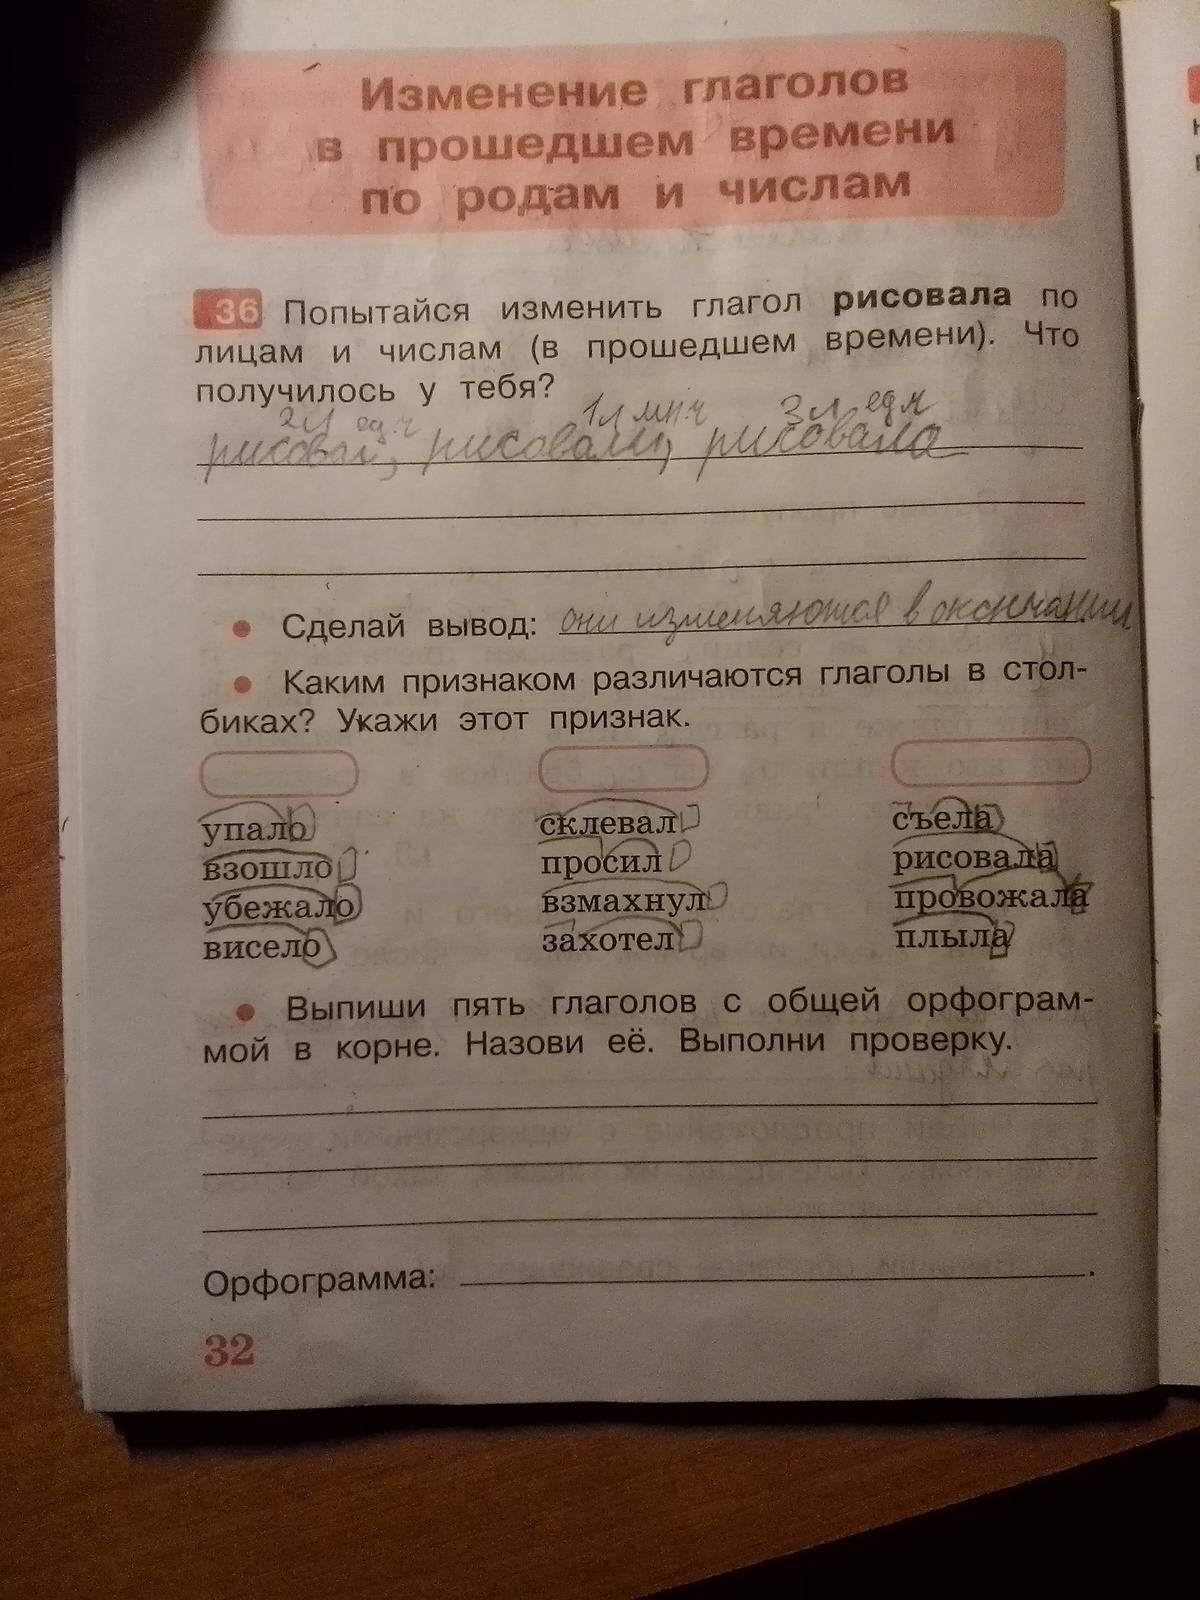 Изменение глаголов
в прошедшем времени
по родам и числам
36 Попытайся изменить глагол рисовала по
лицам и числам (в прошедшем времени). Что
получилось у тебя?
2л ед.ч 1л мн.ч 3л ед ч
рисовал, рисовали, рисовала
• Сделай вывод: они изменяются в окончании
• Каким признаком различаются глаголы в стол-
биках? Укажи этот признак.
упало склевал съела
взошло просил рисовала
убежало взмахнул провожала
висело захотел плыла
• Выпиши пять глаголов с общей орфограм-
мой в корне. Назови её. Выполни проверку.
Орфограмма: .
32